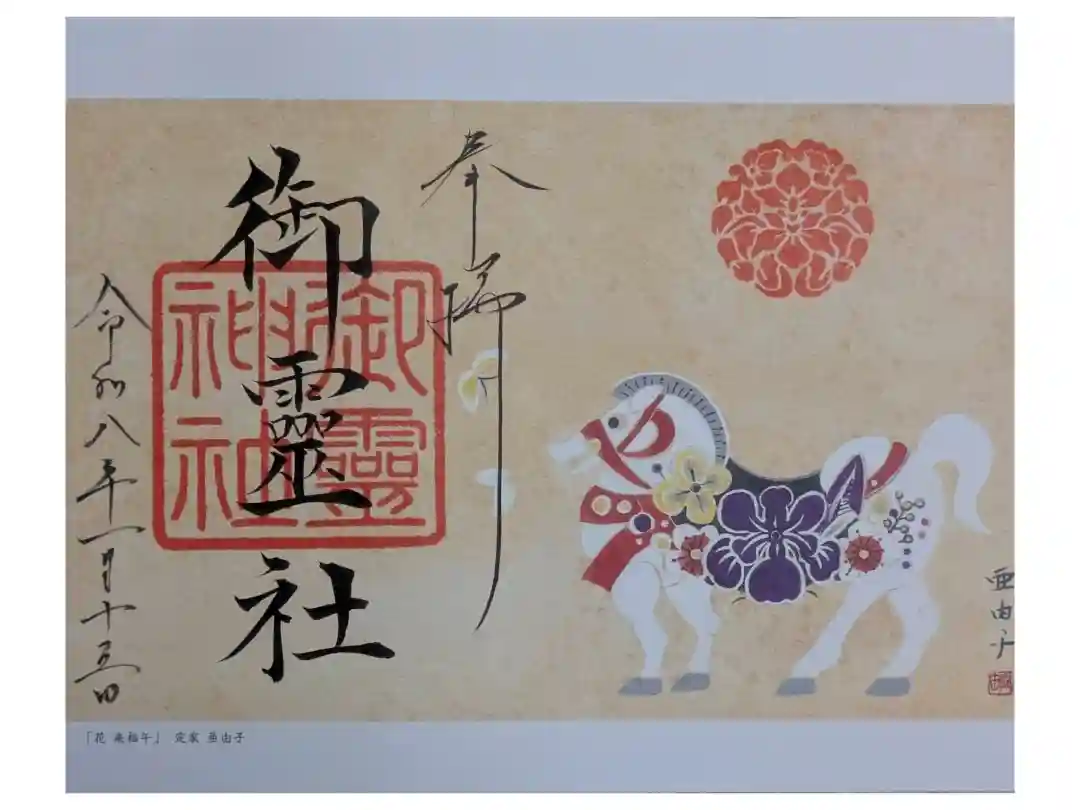 奉拝
御靈社
御靈
神社
令和八年一月十五日
亜由子
「花 来福午」 定家 亜由子